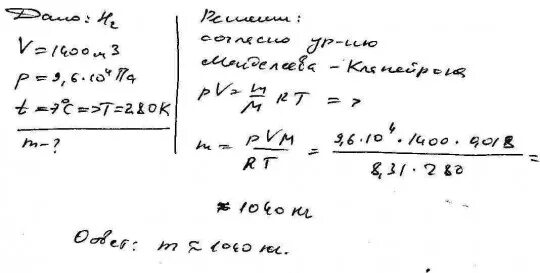 Дано: H₂
V = 1400 м3
p = 9,6·10⁴ Па
t = 7°C => T = 280 K
m - ?
Решение:
согласно ур-ию
Менделеева - Клапейрона
pV = m/M RT =>
m = pVM/RT = 9,6·10⁴·1400·0,018/8,31·280 =
≈ 1040 кг
Ответ: m ≈ 1040 кг.